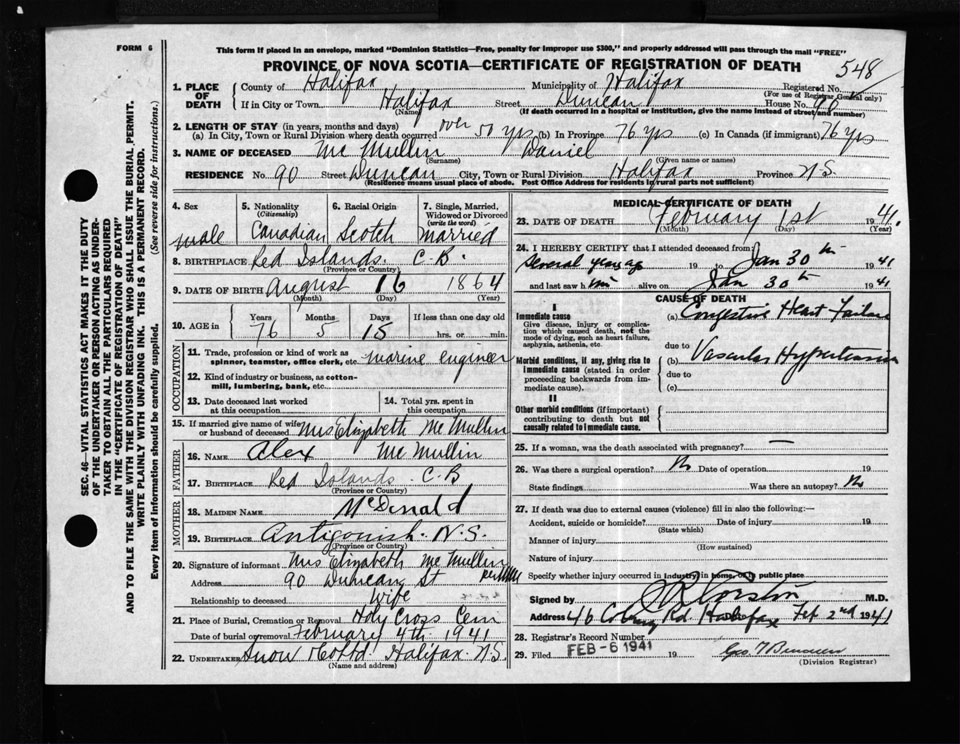 FORM 6
This form if placed in an envelope, marked "Dominion Statistics—Free, penalty for improper use $300," and properly addressed will pass through the mail "FREE"
PROVINCE OF NOVA SCOTIA—CERTIFICATE OF REGISTRATION OF DEATH
548
1. PLACE OF DEATH
County of Halifax Municipality of Halifax Registered No.
(For use of Registrar General only)
If in City or Town Halifax Street Duncan House No. 90
(Name) (If death occurred in a hospital or institution, give the name instead of street and number)
2. LENGTH OF STAY (in years, months and days)
(a) In City, Town or Rural Division where death occurred over 50 yrs (b) In Province 76 yrs (c) In Canada (if immigrant) 76 yrs
3. NAME OF DECEASED Mc Mullin Daniel
(Surname) (Given name or names)
RESIDENCE No. 90 Street Duncan City, Town or Rural Division Halifax Province N.S.
(Residence means usual place of abode. Post Office Address for residents in rural parts not sufficient)
4. Sex male
5. Nationality (Citizenship) Canadian
6. Racial Origin Scotch
7. Single, Married, Widowed or Divorced (write the word) Married
8. BIRTHPLACE Red Islands. C.B.
(Province or Country)
9. DATE OF BIRTH August 16 1864
(Month) (Day) (Year)
10. AGE in Years 76 Months 5 Days 15 If less than one day old hrs. or min.
OCCUPATION
11. Trade, profession or kind of work as spinner, teamster, office clerk, etc. marine engineer
12. Kind of industry or business, as cotton-mill, lumbering, bank, etc.
13. Date deceased last worked at this occupation
14. Total yrs. spent in this occupation
15. If married give name of wife or husband of deceased Mrs Elizabeth Mc Mullin
FATHER
16. NAME Alex Mc Mullin
17. BIRTHPLACE Red Islands C.B
(Province or Country)
MOTHER
18. MAIDEN NAME McDonald
19. BIRTHPLACE Antigonish. N.S.
(Province or Country)
20. Signature of informant Mrs Elizabeth Mc Mullin
Address 90 Duncan St
Relationship to deceased Wife
21. Place of Burial, Cremation or Removal Holy Cross Cem
Date of burial or removal February 4th 1941
22. UNDERTAKER Snow & Co Ltd Halifax N.S.
(Name and address)
MEDICAL CERTIFICATE OF DEATH
23. DATE OF DEATH February 1st 1941.
(Month) (Day) (Year)
24. I HEREBY CERTIFY that I attended deceased from:
Several years ago 19 to Jan 30th 1941
and last saw him alive on Jan 30th 1941
CAUSE OF DEATH
I
Immediate cause
Give disease, injury or complication which caused death, not the mode of dying, such as heart failure, asphyxia, asthenia, etc.
(a) Congestive Heart Failure
due to
Morbid conditions, if any, giving rise to immediate cause (stated in order proceeding backwards from immediate cause).
(b) Vascular Hypertension
due to
(c)
II
Other morbid conditions (if important) contributing to death but not causally related to immediate cause.
25. If a woman, was the death associated with pregnancy? —
26. Was there a surgical operation? No Date of operation 19
State findings Was there an autopsy? No
27. If death was due to external causes (violence) fill in also the following:—
Accident, suicide or homicide? Date of injury 19
(State which)
Manner of injury
(How sustained)
Nature of injury
Specify whether injury occurred in industry, in home, or in public place
Signed by M.D.
Address 46 Coburg Rd. Halifax Feb 2nd 1941
28. Registrar's Record Number
29. Filed FEB -6 1941 19
(Division Registrar)
SEC. 46—VITAL STATISTICS ACT MAKES IT THE DUTY OF THE UNDERTAKER OR PERSON ACTING AS UNDERTAKER TO OBTAIN ALL THE PARTICULARS REQUIRED IN THE "CERTIFICATE OF REGISTRATION OF DEATH" AND TO FILE THE SAME WITH THE DIVISION REGISTRAR WHO SHALL ISSUE THE BURIAL PERMIT.
WRITE PLAINLY WITH UNFADING INK. THIS IS A PERMANENT RECORD.
Every item of Information should be carefully supplied. (See reverse side for instructions.)